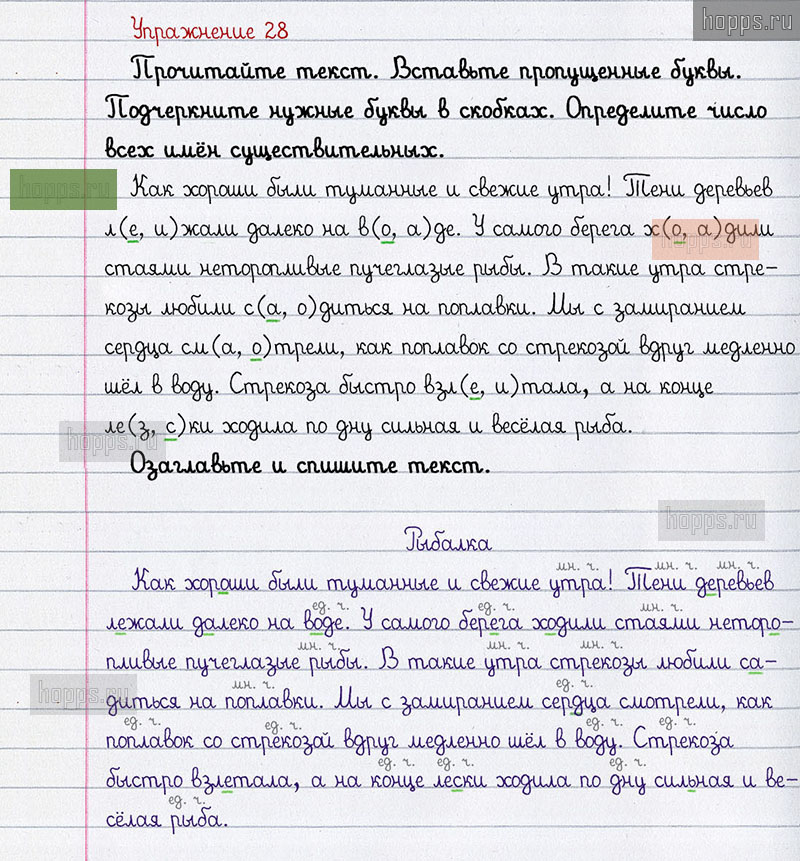 hopps.ru
Упражнение 28
Прочитайте текст. Вставьте пропущенные буквы.
Подчеркните нужные буквы в скобках. Определите число
всех имён существительных.
hopps.ru
Как хороши были туманные и свежие утра! Тени деревьев
л(е, и)жали далеко на в(о, а)де. У самого берега х(о, а)дили
hopps.ru
стаями неторопливые пучеглазые рыбы. В такие утра стре-
козы любили с(а, о)диться на поплавки. Мы с замиранием
сердца см(а, о)трели, как поплавок со стрекозой вдруг медленно
шёл в воду. Стрекоза быстро взл(е, и)тала, а на конце
ле(з, с)ки ходила по дну сильная и весёлая рыба.
hopps.ru
Озаглавьте и спишите текст.
hopps.ru
Рыбалка
мн. ч. мн. ч. мн. ч.
Как хороши были туманные и свежие утра! Тени деревьев
ед. ч. ед. ч. мн. ч.
лежали далеко на воде. У самого берега ходили стаями неторо-
мн. ч. мн. ч. мн. ч.
пливые пучеглазые рыбы. В такие утра стрекозы любили са-
hopps.ru
мн. ч. ед. ч.
диться на поплавки. Мы с замиранием сердца смотрели, как
ед. ч. ед. ч. ед. ч. ед. ч.
поплавок со стрекозой вдруг медленно шёл в воду. Стрекоза
ед. ч. ед. ч. ед. ч.
быстро взлетала, а на конце лески ходила по дну сильная и ве-
ед. ч.
сёлая рыба.